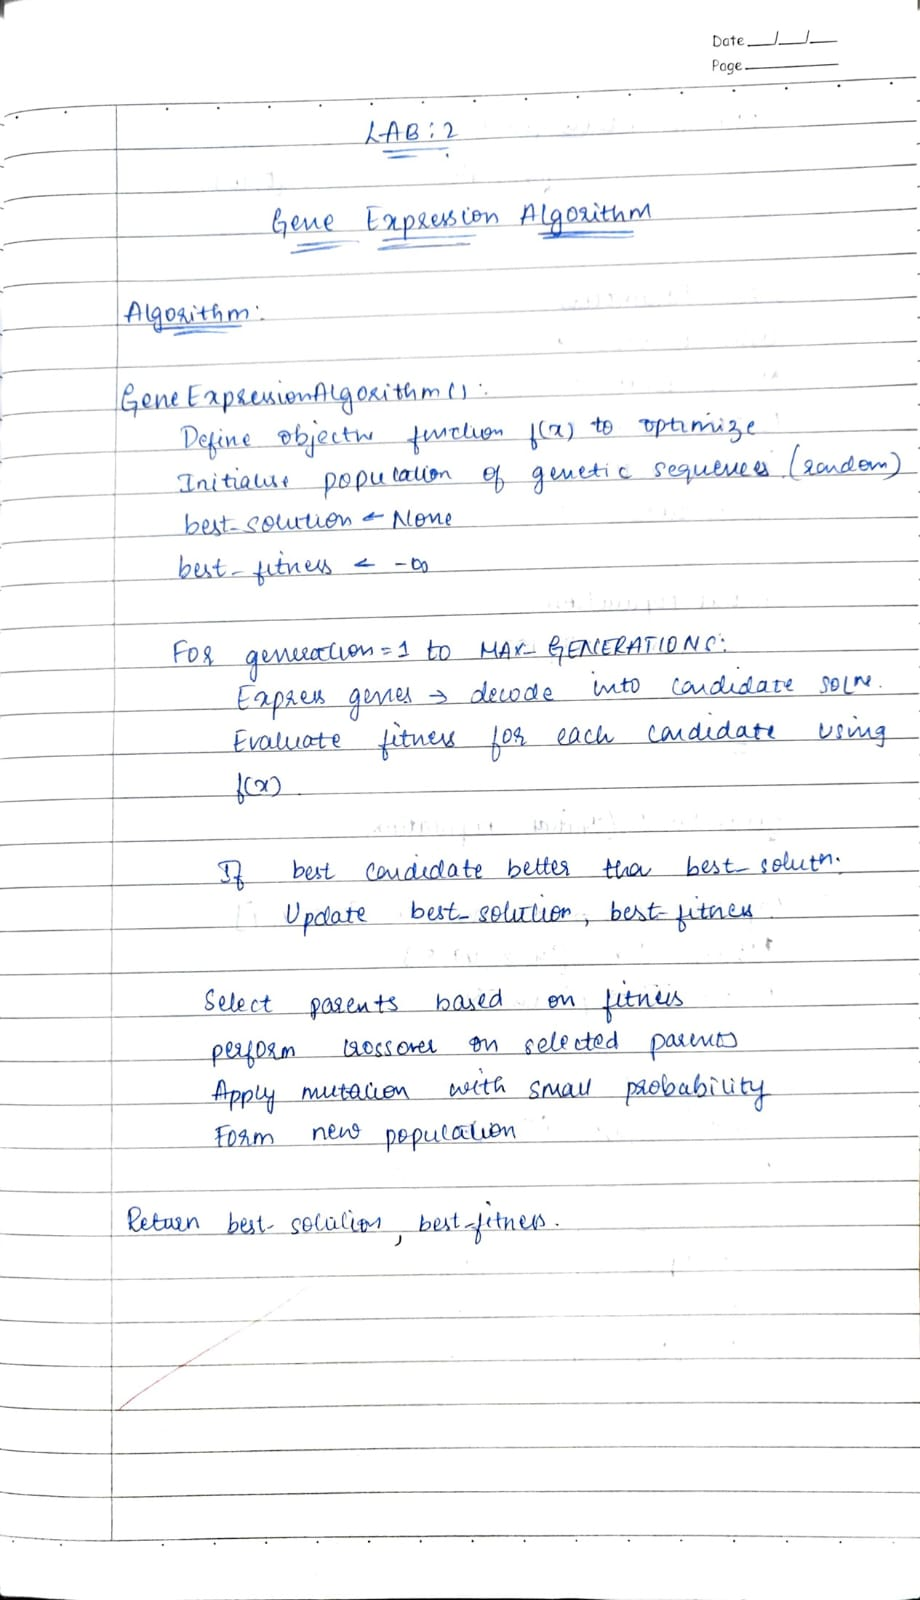 Date __/__/__
Page ________
LAB: 2
Gene Expression Algorithm
Algorithm:
GeneExpressionAlgorithm():
Define objectiv function f(x) to optimize
Initialise population of genetic sequences (random)
best-solution ← None
best-fitness ← -∞
For generation = 1 to MAX-GENERATIONS:
Express genes → decode into candidate soln.
Evaluate fitness for each candidate using
f(x)
If best candidate better than best-solutn.
Update best-solution, best-fitness
Select parents based on fitness
perform crossover on selected parents
Apply mutation with small probability
Form new population
Return best-solution, best-fitness.